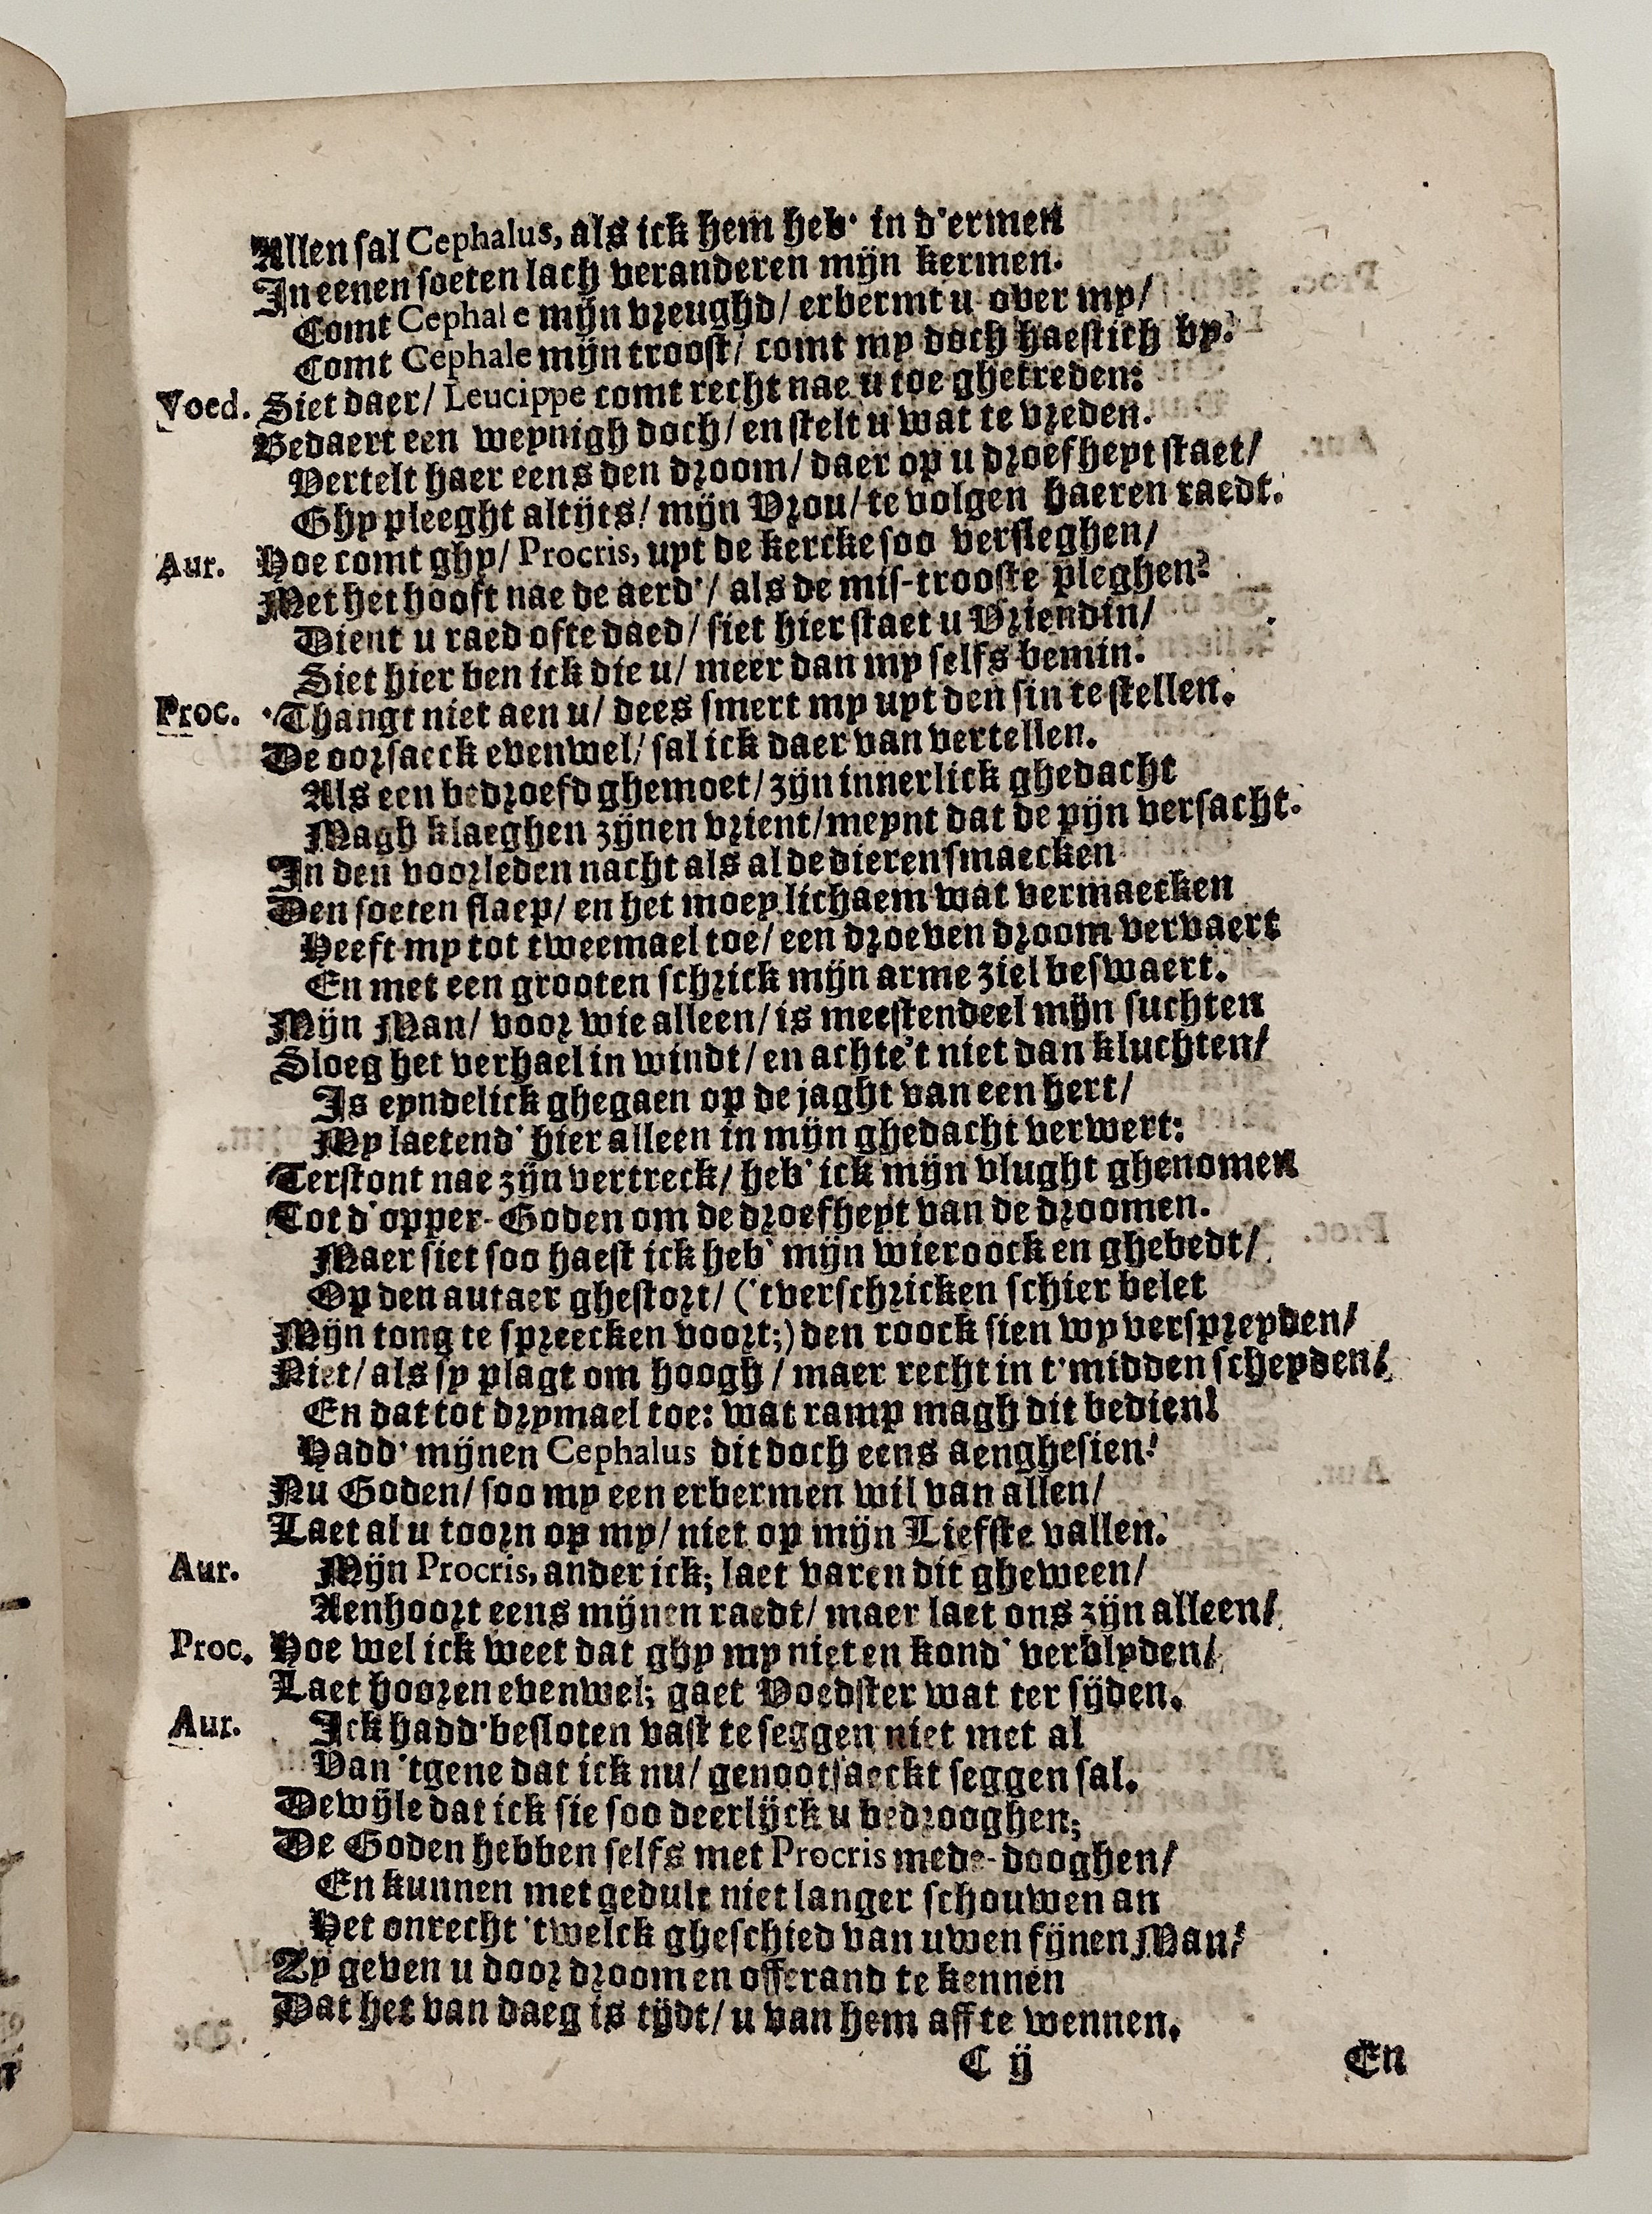 Allen sal Cephalus, als ick hem heb' in d'ermen
In eenen soeten lach veranderen mijn kermen.
Comt Cephale mijn vreughd/ erbermt u over my/
Comt Cephale mijn troost/ comt my doch haestich by.
Voed. Siet daer/ Leucippe comt recht nae u toe ghetreden:
Bedaert een weynigh doch/ en stelt u wat te vreden.
Vertelt haer eens den droom/ daer op u droefheyt staet/
Ghy pleeght altijts/ mijn Vrou/ te volgen haeren raedt.
Aur. Hoe comt ghy/ Procris, uyt de kercke soo versleghen/
Met het hooft nae de aerd'/ als de mis-trooste pleghen?
Dient u raed ofte daed/ siet hier staet u Vriendin/
Siet hier ben ick die u/ meer dan my selfs bemin.
Proc. 'Thangt niet aen u/ dees smert my uyt den sin te stellen.
De oorsaeck evenwel/ sal ick daer van vertellen.
Als een bedroefd ghemoet/ zijn innerlick ghedacht
Magh klaeghen zijnen vrient/ meynt dat de pijn versacht.
In den voorleden nacht als al de dieren smaecken
Den soeten slaep/ en het moey lichaem wat vermaecken
Heeft my tot tweemael toe/ een droeven droom vervaert
En met een grooten schrick mijn arme ziel beswaert.
Mijn Man/ voor wie alleen/ is meestendeel mijn suchten
Sloeg het verhael in windt/ en achte't niet dan kluchten/
Is eyndelick ghegaen op de jaght van een hert/
My laetend' hier alleen in mijn ghedacht verwert:
Terstont nae zijn vertreck/ heb' ick mijn vlught ghenomen
Tot d'opper-Goden om de droefheyt van de droomen.
Maer siet soo haest ick heb' mijn wieroock en ghebedt/
Op den autaer ghestort/ ('tverschricken schier belet
Mijn tong te spreecken voort;) den roock sien wy verspreyden/
Niet/ als sy plagt om hoogh/ maer recht in t'midden scheyden/
En dat tot drymael toe: wat ramp magh dit bedien!
Hadd' mijnen Cephalus dit doch eens aenghesien!
Nu Goden/ soo my een erbermen wil van allen/
Laet al u toorn op my/ niet op mijn Liefste vallen.
Aur. Mijn Procris, ander ick; laet varen dit gheween/
Aenhoort eens mijnen raedt/ maer laet ons zijn alleen/
Proc. Hoe wel ick weet dat ghy my niet en kond' verblyden/
Laet hooren evenwel; gaet Voedster wat ter sijden.
Aur. Ick hadd' besloten vast te seggen niet met al
Van 'tgene dat ick nu/ genootsaeckt seggen sal.
Dewijle dat ick sie soo deerlijck u bedrooghen;
De Goden hebben selfs met Procris mede-dooghen/
En kunnen met gedult niet langer schouwen an
Het onrecht 'twelck gheschied van uwen fijnen Man!
Zy geven u door droom en offerand te kennen
Dat het van daeg is tijdt/ u van hem aff te wennen.
C ij En